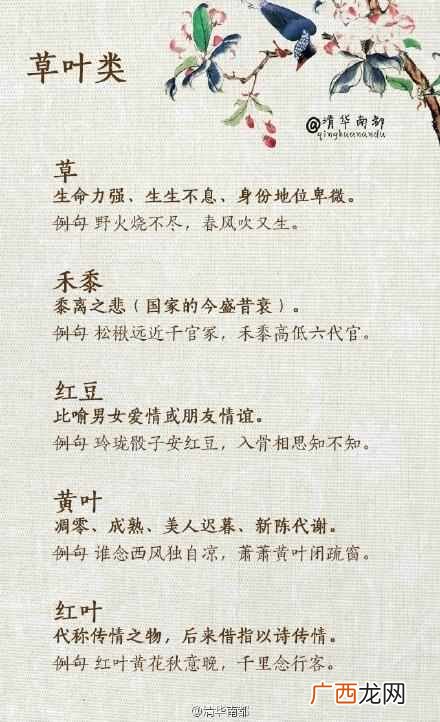 草叶类
@清华南都
qinghuanandu
草
生命力强、生生不息、身份地位卑微。
例句 野火烧不尽，春风吹又生。
禾黍
黍离之悲（国家的今盛昔衰）。
例句 松楸远近千官冢，禾黍高低六代宫。
红豆
比喻男女爱情或朋友情谊。
例句 玲珑骰子安红豆，入骨相思知不知。
黄叶
凋零、成熟、美人迟暮、新陈代谢。
例句 谁念西风独自凉，萧萧黄叶闭疏窗。
红叶
代称传情之物，后来借指以诗传情。
例句 红叶黄花秋意晚，千里念行客。
@清华南都
广西龙网